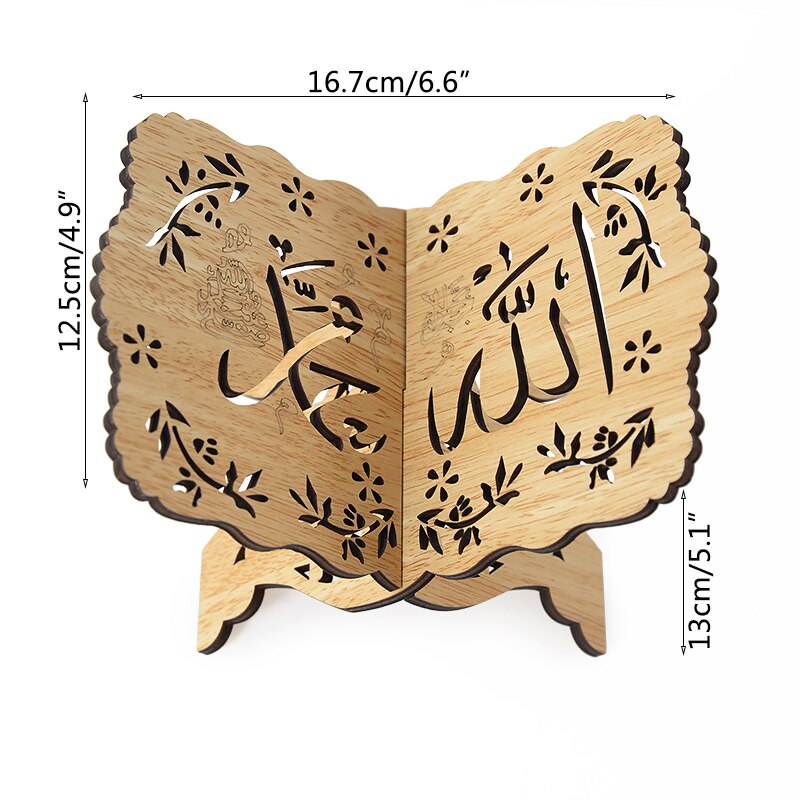 16.7cm/6.6”
12.5cm/4.9”
محمد
الله
13cm/5.1”